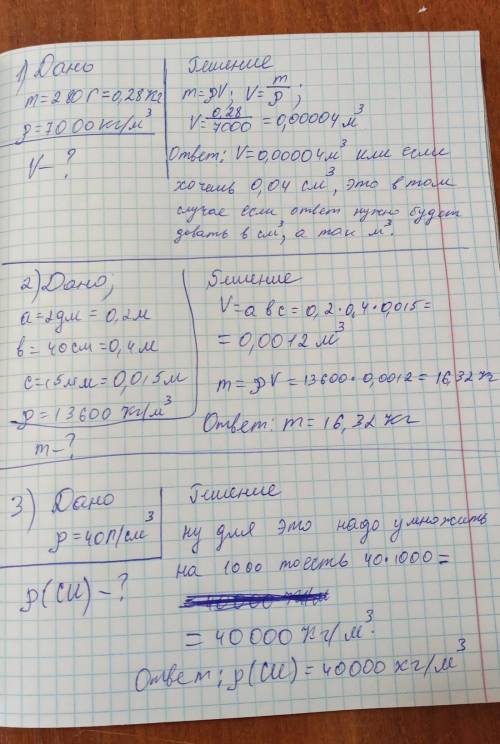 1) Дано
m=280г=0,28кг
ρ=7000кг/м³
V-?
Решение
m=ρV; V=m/ρ;
V=0,28/7000=0,00004м³
Ответ: V=0,00004м³ или если
хочешь 0,04 см³, это в том
случае если ответ нужно будет
довать в см³, а так м³.
2) Дано;
a=2дм=0,2м
в=40см=0,4м
c=15мм=0,015м
ρ=13600 кг/м³
m-?
Решение
V=a в c=0,2·0,4·0,015=
=0,0012 м³
m=ρV=13600·0,0012=16,32 кг
Ответ: m=16,32 кг
3) Дано
ρ=40г/см³
ρ(СИ)-?
Решение
ну для это надо умножить
на 1000 тоесть 40·1000=
=40000 кг/м³.
Ответ; ρ(СИ)=40000 кг/м³